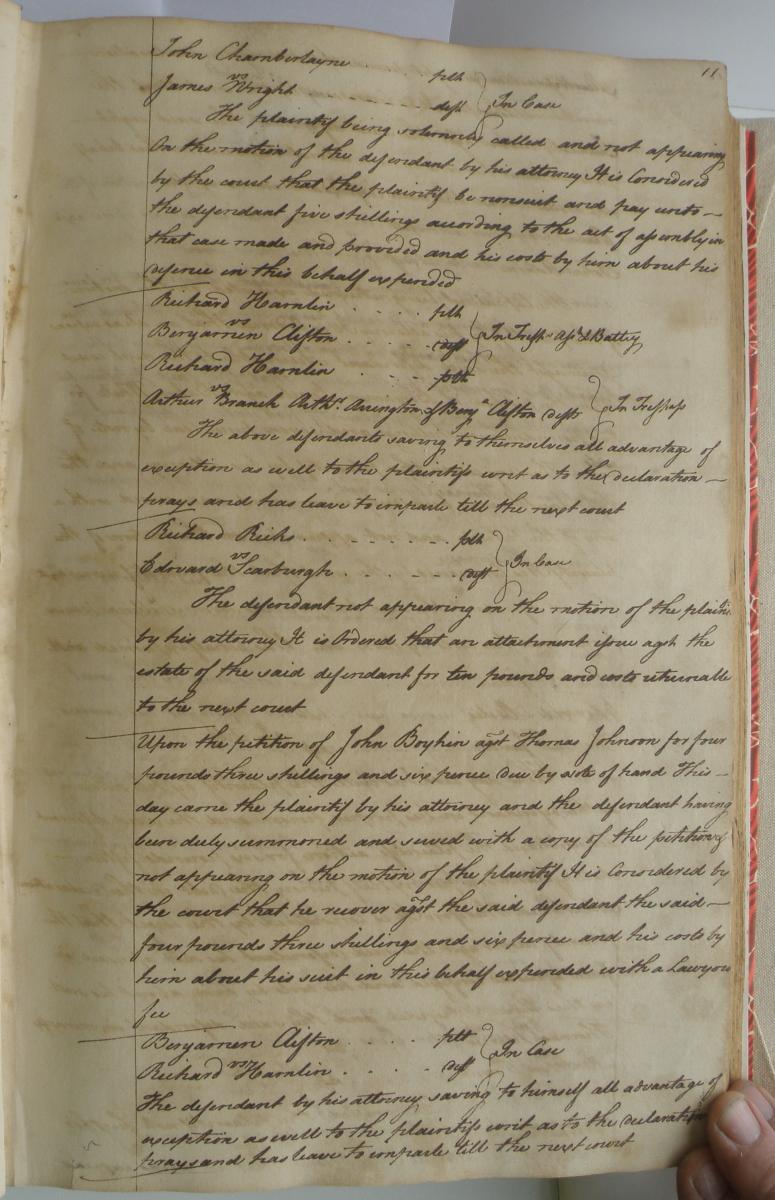 11
John Chamberlayne . . . plt
vs
James Wright . . . . . . . deft In Case
The plaintif being solemnly called and not appearing
On the motion of the defendant by his attorney It is Considered
by the court that the plaintif be nonsuit and pay unto —
the defendant five shillings acording to the act of assembly in
that case made and provided and his costs by him about his
defence in this behalf expended
Richard Hamlin . . . . plt
vs
Benjamen Clifton . . . . . deft In Tresps Asst & Battey
Richard Hamlin . . - plt
vs
Arthur Branch Arthr Arrington & Benja Clifton defts In Trespass
The above defendants saving to themselves all advantage of
exception as well to the plaintifs writ as to the declaration —
prays and has leave to imparle till the next court
Richard Ricks . . . . . . . . plt
vs
Edward Scarburgh . . . . . . deft In Case
The defendant not appearing on the motion of the plaintif
by his attorney It is Ordered that an attachment issue agst the
estate of the said defendant for ten pounds and costs returnable
to the next court
Upon the petition of John Boykin agst Thomas Johnson for four
pounds three shillings and six pence due by note of hand This —
day came the plaintif by his attorney and the defendant having
been duly summoned and served with a copy of the petition &
not appearing on the motion of the plaintif It is Considered by
the court that he recover agst the said defendant the said —
four pounds three shillings and six pence and his costs by
him about his suit in this behalf expended with a Lawyers
fee
Benjamen Clifton . . . . plt
vs
Richard Hamlin . . . . deft In Case
The defendant by his attorney saving to himself all advantage of
exception as well to the plaintifs writ as to the declaration
prays and has leave to imparle till the next court